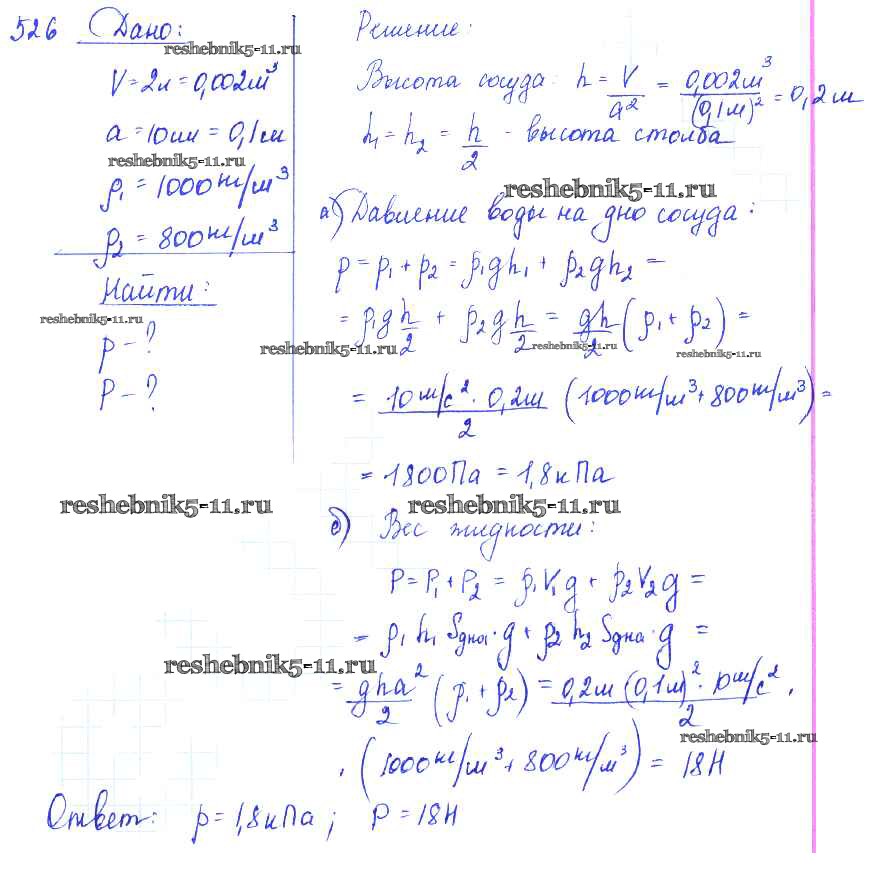 526 Дано:
reshebnik5-11.ru
V=2л=0,002м³
a=10см=0,1м
reshebnik5-11.ru
ρ₁=1000кг/м³
ρ₂=800кг/м³
Найти:
reshebnik5-11.ru
p-?
P-?
Решение:
Высота сосуда: h = V/a² = 0,002м³/(0,1м)² = 0,2м
h₁ = h₂ = h/2 - высота столба
reshebnik5-11.ru
а) Давление воды на дно сосуда:
p = p₁ + p₂ = ρ₁gh₁ + ρ₂gh₂ =
= ρ₁g h/2 + ρ₂g h/2 = gh/2 (ρ₁ + ρ₂) =
reshebnik5-11.ru reshebnik5-11.ru reshebnik5-11.ru
= 10м/с² · 0,2м / 2 (1000кг/м³ + 800кг/м³) =
= 1800Па = 1,8кПа
reshebnik5-11.ru reshebnik5-11.ru
б) Вес жидкости:
P = P₁ + P₂ = ρ₁V₁g + ρ₂V₂g =
= ρ₁h₁Sдна·g + ρ₂h₂Sдна·g =
reshebnik5-11.ru
= gha²/2 (ρ₁ + ρ₂) = 0,2м (0,1м)² · 10м/с² / 2 ·
reshebnik5-11.ru
· (1000кг/м³ + 800кг/м³) = 18Н
Ответ: p = 1,8кПа; P = 18Н